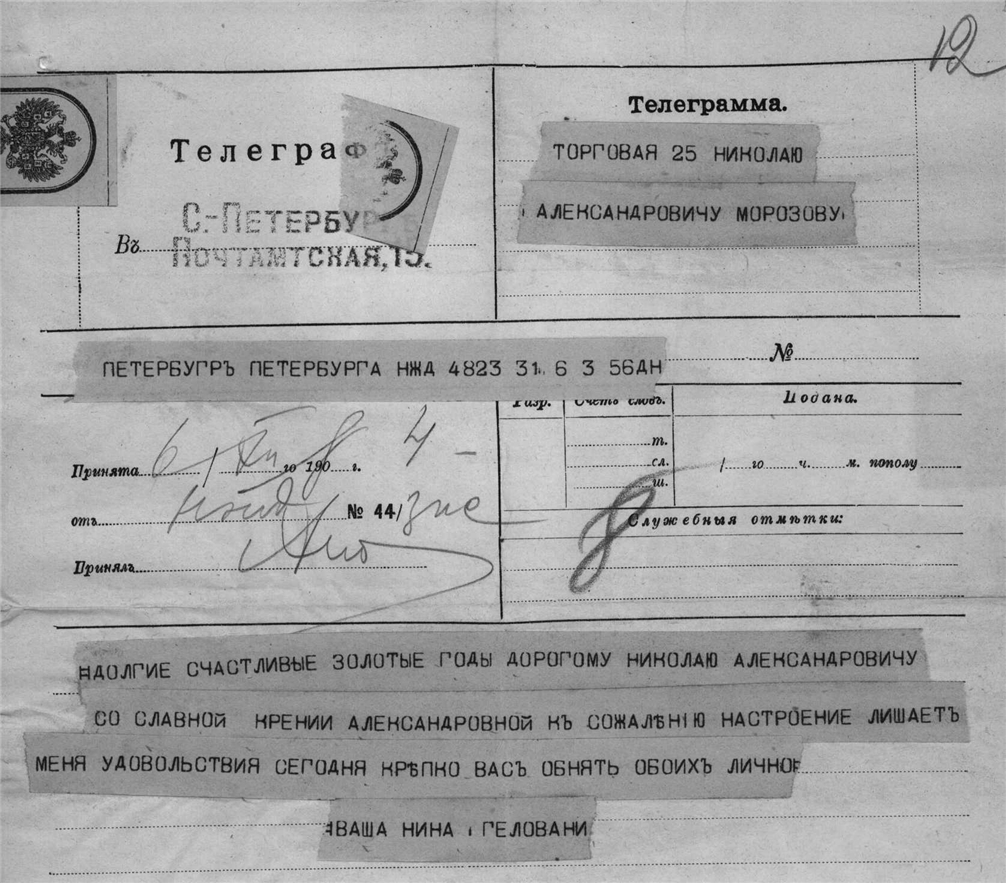 12
Телеграмма.
Телеграф
ТОРГОВАЯ 25 НИКОЛАЮ
АЛЕКСАНДРОВИЧУ МОРОЗОВУ
С.-ПЕТЕРБУР
Въ
ПОЧТАМТСКАЯ, 15.
№
ПЕТЕРБУГРЪ ПЕТЕРБУРГА НЖД 4823 31 6 3 56ДН
Разр. Счетъ словъ. Подана.
т.
Принята 6 го 1908 г. 4 -
сл. / го ч. м. пополу
ш.
отъ № 44/
8
Служебныя отмѣтки:
Принялъ
ДОЛГИЕ СЧАСТЛИВЫЕ ЗОЛОТЫЕ ГОДЫ ДОРОГОМУ НИКОЛАЮ АЛЕКСАНДРОВИЧУ
СО СЛАВНОЙ КРЕНИИ АЛЕКСАНДРОВНОЙ КЪ СОЖАЛѢНІЮ НАСТРОЕНИЕ ЛИШАЕТЪ
МЕНЯ УДОВОЛЬСТВИЯ СЕГОДНЯ КРѢПКО ВАСЪ ОБНЯТЬ ОБОИХЪ ЛИЧНО
ВАША НИНА ГЕЛОВАНИ